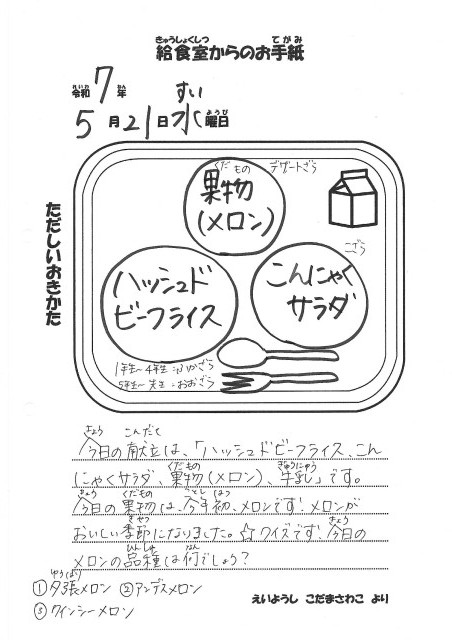 給食室からのお手紙
きゅうしょくしつ てがみ
令和7年
れいわ ねん
5月21日水曜日
すい ようび
ただしいおきかた
果物
くだもの
(メロン)
デザートざら
こざら
ハッシュド
ビーフライス
こんにゃく
サラダ
1年生～4年生：ふかざら
5年生～先生：おおざら
きょう こんだて
今日の献立は、「ハッシュドビーフライス、こん
くだもの ぎゅうにゅう
にゃくサラダ、果物(メロン)、牛乳」です。
きょう くだもの ことし はつ
今日の果物は、今年初、メロンです!メロンが
きせつ きょう
おいしい季節になりました。☆クイズです!今日の
ひんしゅ なん
メロンの品種は何でしょう?
ゆうばり
①夕張メロン ②アンデスメロン
③クインシーメロン
えいようし こだまさわこ より